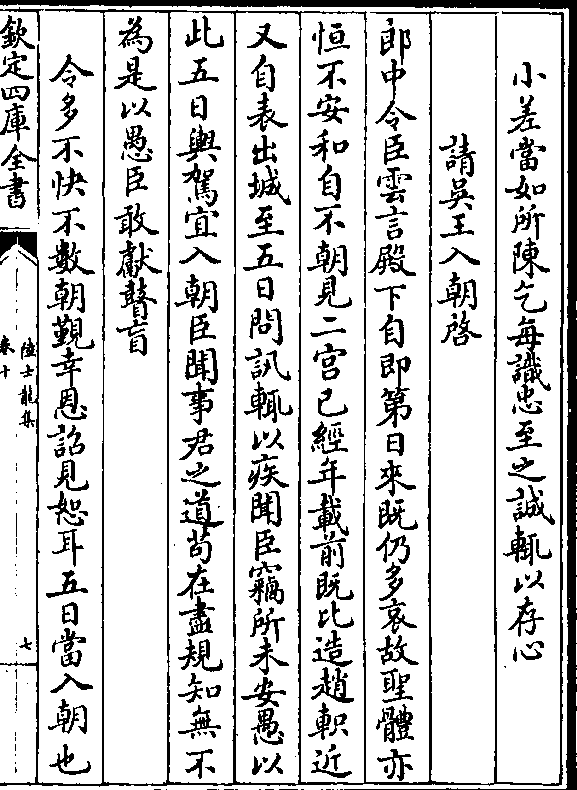 小差當如所陳乞每識忠至之誠輒以存心
請吳王入朝啓
郎中令臣雲言殿下自即第日來既仍多哀故聖體亦
恒不安和自不朝見二宫已經年載前既比造趙軹近
又自表出城至五日問訊輒以疾聞臣竊所未安愚以
此五日輿駕宜入朝臣聞事君之道苟在盡規知無不
為是以愚臣敢獻瞽盲
令多不快不數朝覲幸恩詔見恕耳五日當入朝也
欽定四庫全書
陸士龍集
卷十
七